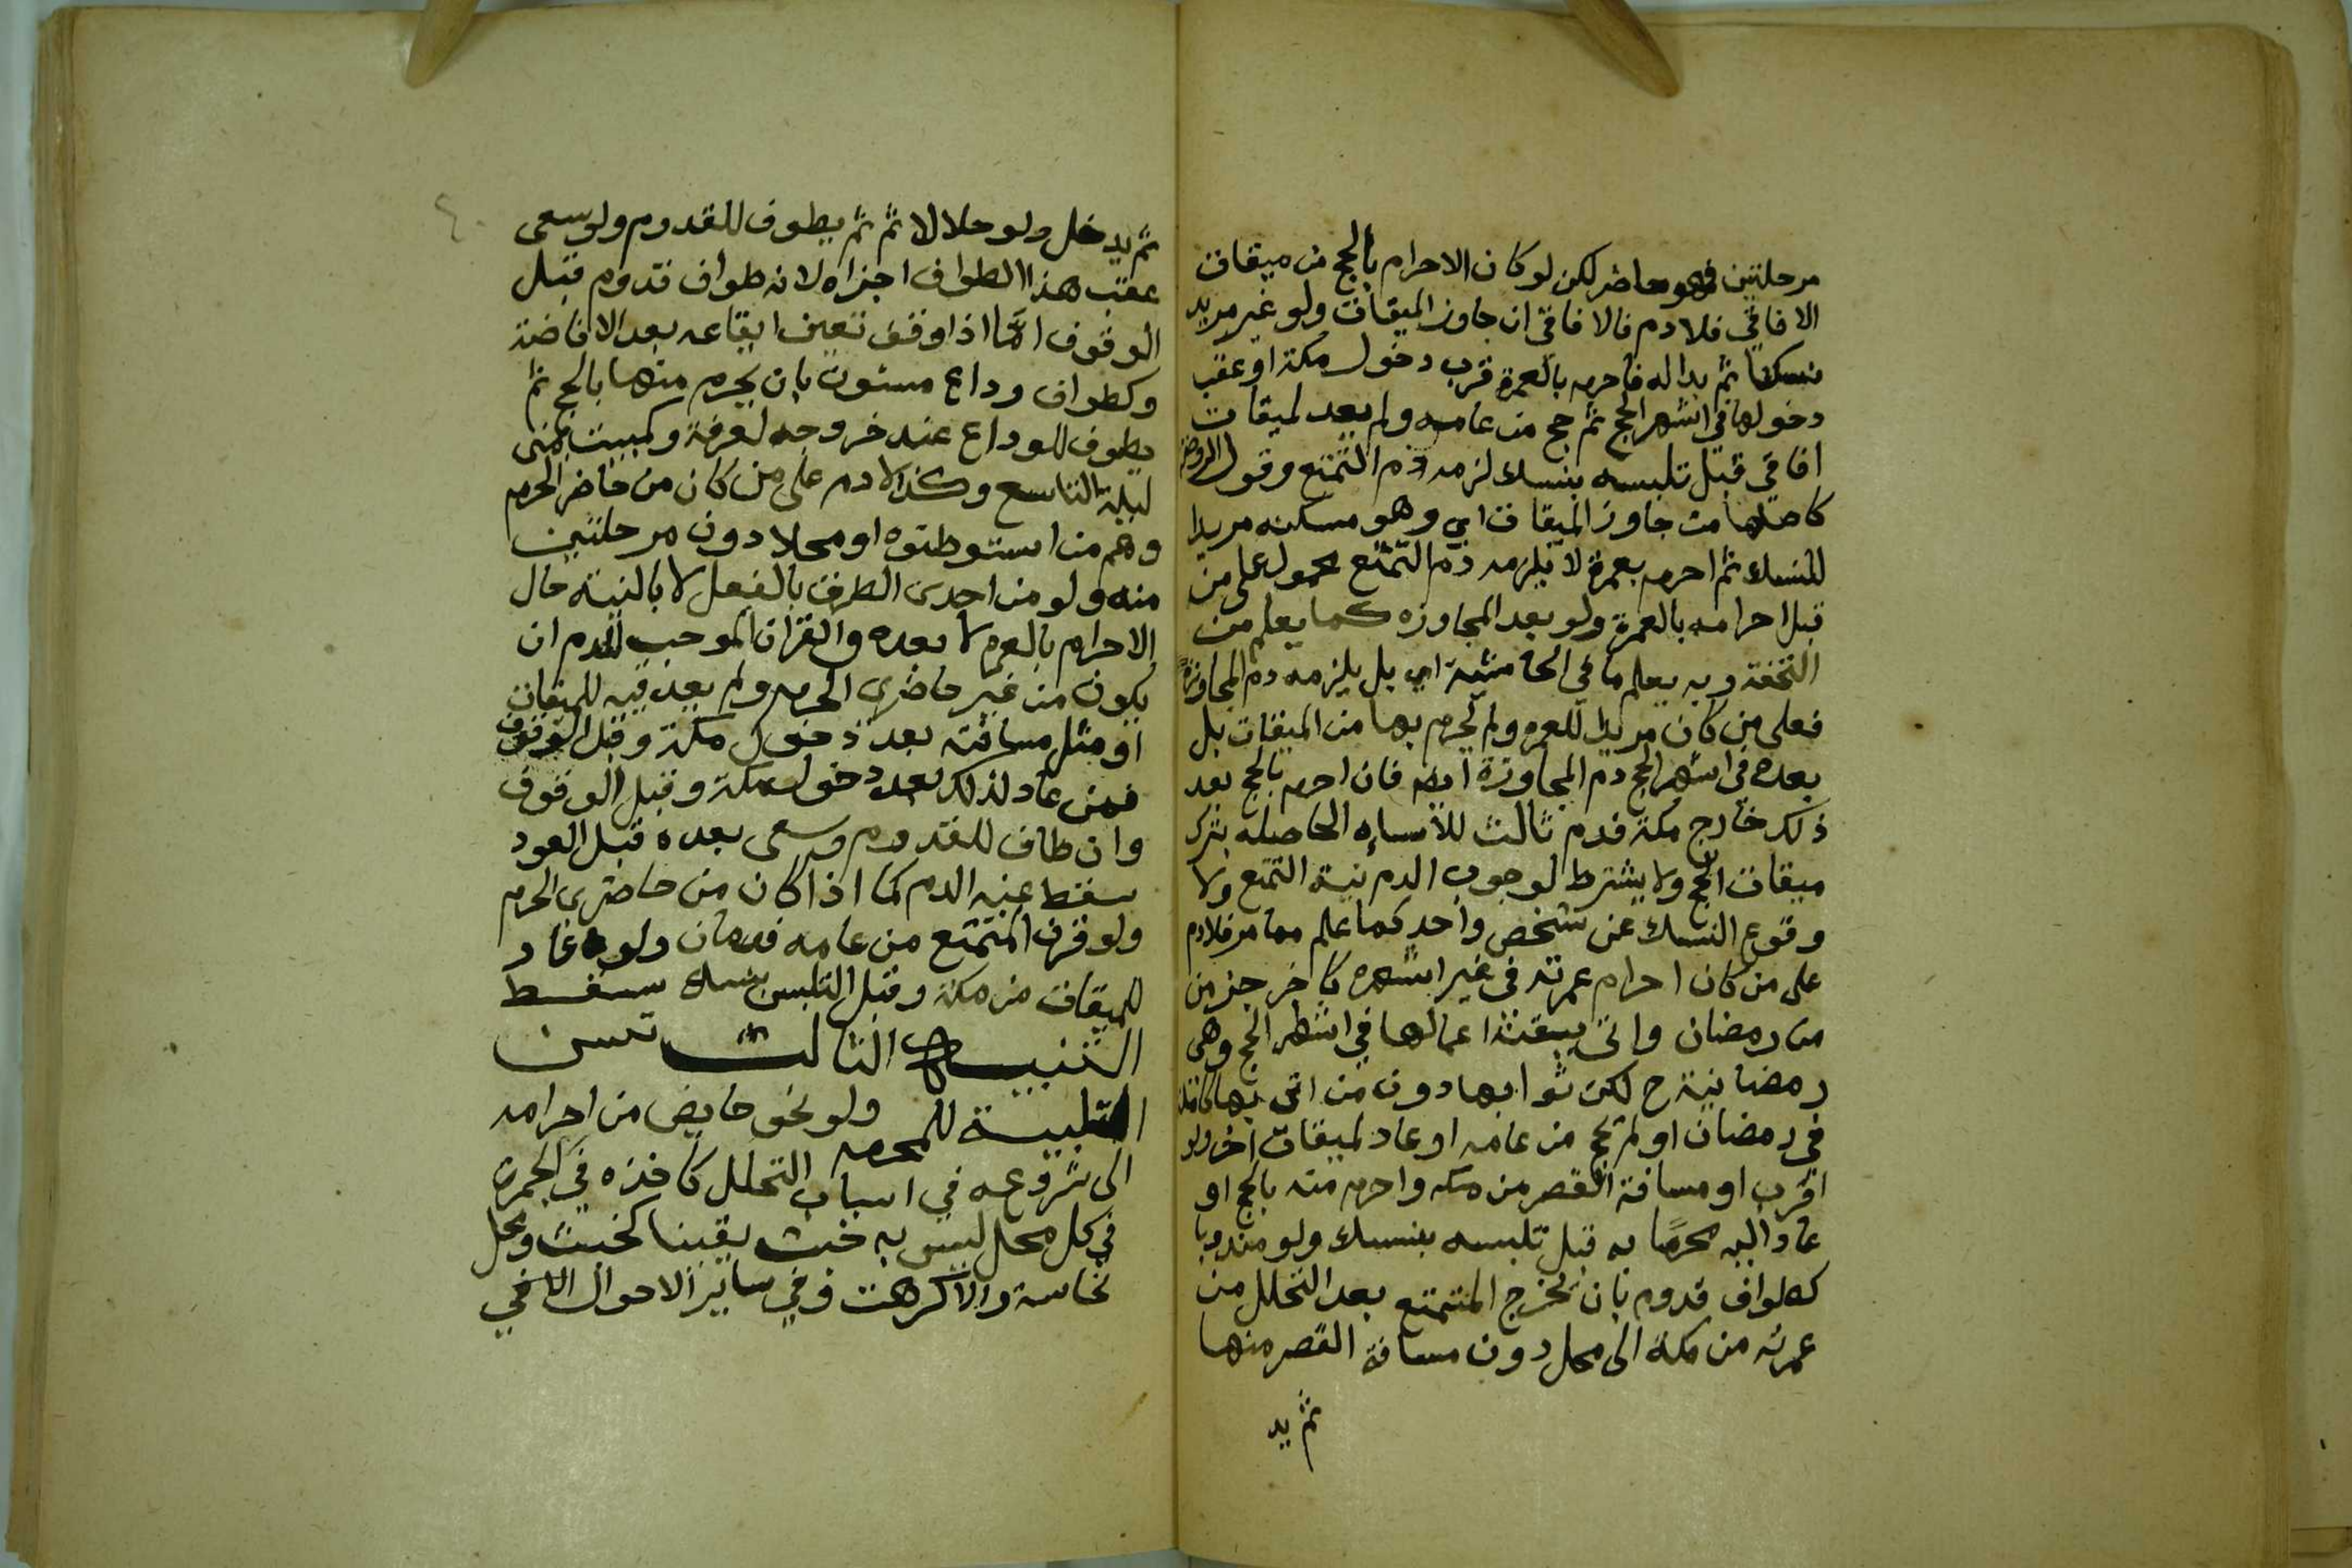 مرحلتين فهو حاضر لكن لو كان الاحرام بالحج من ميقات
الافاقي فلا دم فالافاقي ان جاوز الميقات ولو غير مريد
نسكا ثم بدا له فاحرم بالعمرة قرب دخول مكة او عقب
دخولها في اشهر الحج ثم حج من عامه ولم يعد لميقات
افاقي قبل تلبسه بنسك لزمه دم التمتع وقول الروضه
كاصلها من جاوز الميقات اي وهو مسكنه مريدا
للنسك ثم احرم بعمرة لا يلزمه دم التمتع محمول على من
قبل احرامه بالعمرة ولو بعد المجاوزه كما يعلم من
التحفة وبه يعلم ما في الحاشية اي بل يلزمه دم المجاوزة
فعلى من كان مريدا للعمره ولم يحرم بها من الميقات بل
بعده في اشهر الحج دم المجاوزة ايضا فان احرم بالحج بعد
ذلك خارج مكة فدم ثالث للأساءه الحاصله بترك
ميقات الحج ولا يشترط لوجوب الدم نية التمتع ولا
وقوع النسك عن شخص واحد كما علم مما مر فلا دم
على من كان احرام عمرته في غير اشهره كاخر جزء من
من رمضان واتى ببقية اعمالها في اشهر الحج وهي
رمضانية ح لكن ثوابها دون من اتى بها كاملة
في رمضان او لم يحج من عامه او عاد لميقات اخر ولو
اقرب او مسافة القصر من مكه واحرم منه بالحج او
عاد اليه محرمًا به قبل تلبسه بنسك ولو مندوبا
كطواف قدوم بان يخرج المتمتع بعد التحلل من
عمرته من مكة الى محل دون مسافة القصر منها
ثم يد
ثم يدخل ولو حلالا ثم ثم يطوف للقدوم ولو سعى
عقب هذا الطواف اجزاه لانه طواف قدوم قبل
الوقوف امّا اذا وقف تعين ايقاعه بعد الافاضة
وكطواف وداع مسنون بان يحرم منها بالحج ثم
يطوف للوداع عند خروجه لعرفة وكمبيت بمنى
ليلة التاسع وكذا لا دم على من كان من حاضر الحرم
وهم من استوطنوه او محلا دون مرحلتين
منه ولو من احدى الطرق بالفعل لا بالنية حال
الاحرام بالعمره لا بعده والقران الموجب للدم ان
يكون من غير حاضري الحرم ولم يعد فيه للميقات
او مثل مسافته بعد دخول مكة وقبل الوقوف
فمن عاد لذلك بعد دخول مكة وقبل الوقوف
وان طاف للقدوم وسعى بعده قبل العود
سقط عنه الدم كما اذا كان من حاضري الحرم
ولو قرن المتمتع من عامه فدمان ولو عاد
للميقات من مكة وقبل التلبس بنسك سقط
التنبيه الثالث تسن
التلبية للمحرم ولو نحو حايض من احرامه
الى شروعه في اسباب التحلل كاخذه في الجمرة
في كل محل ليس به خبث يقينا كخبيث ومحل
نجاسة والا كرهت وفي ساير الاحوال الا في